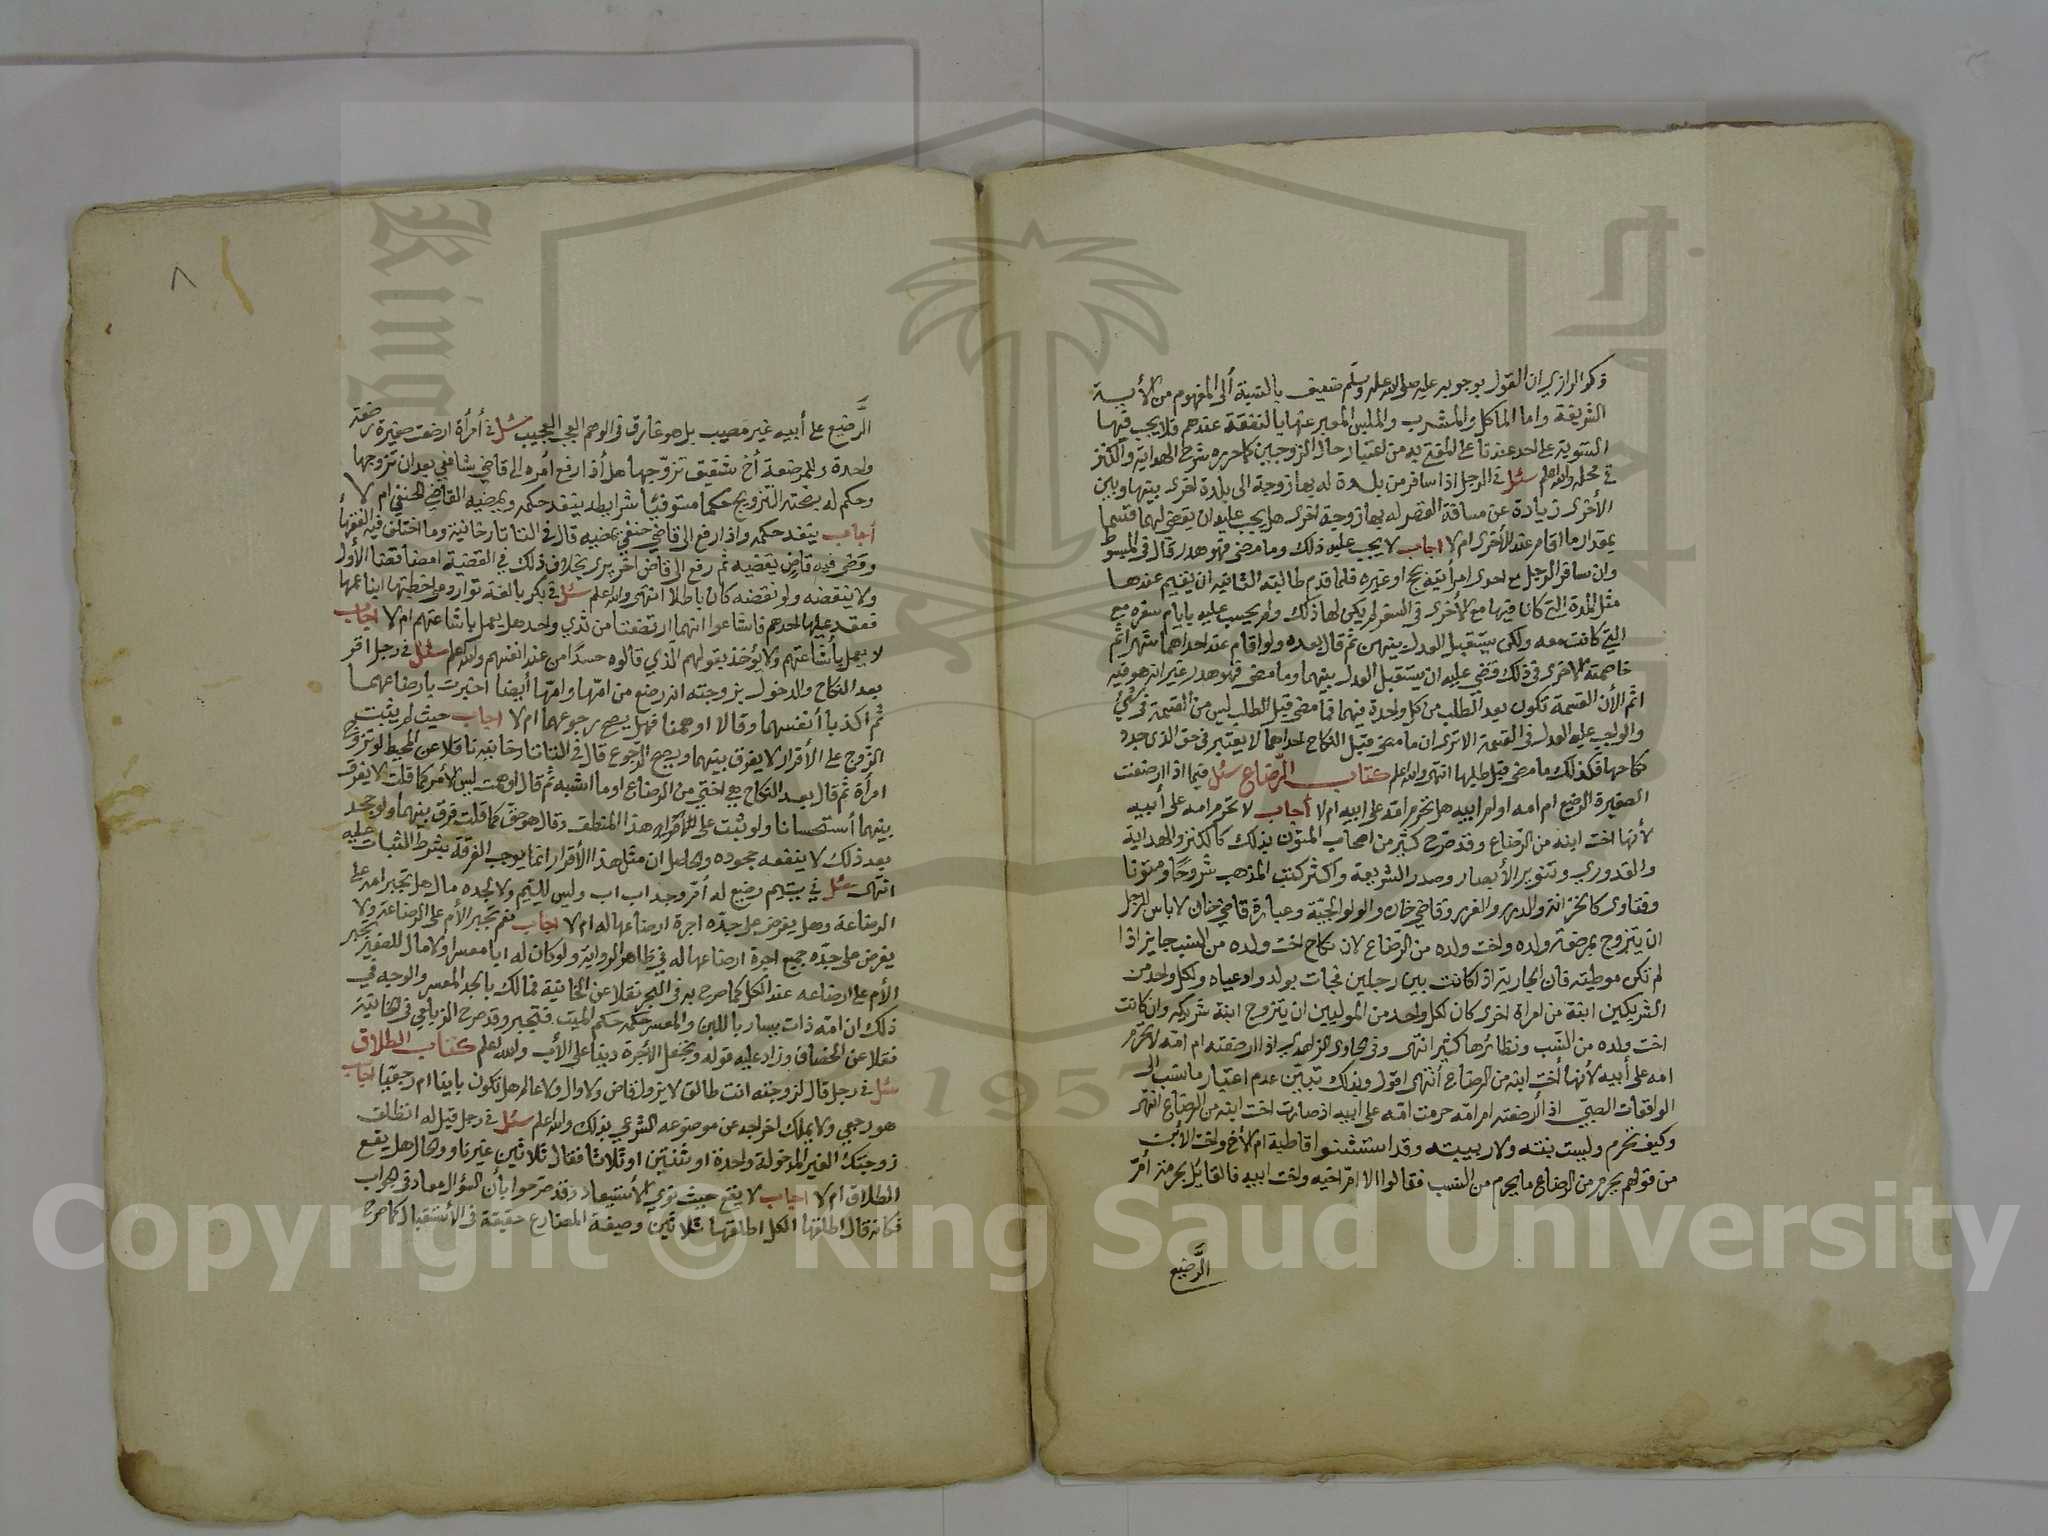 ذكر الرازي ان القول بوجوبه عليه صلى الله عليه وسلم ضعيف بالنسبة الى المفهوم من الآية
الشريفة واما المأكل والمشرب والملبس المعبر عنها بالنفقة عندهم فلا يجب فيها
التسوية على احد عندنا على المفتى به من اعتبار حال الزوجين كما حرره شرح الهداية والكنز
في محله والله اعلم سئل في الرجل اذا سافر من بلدة له بها زوجة الى بلدة اخرى بينها وبين
الأخرى زيادة عن مسافة القصر له بها زوجة اخرى هل يجب عليه ان يقضي لهما قسما
بمقدار ما اقام عند الأخرى ام لا اجاب لا يجب عليه ذلك وما مضى فهو هدر قال في المبسوط
وان سافر الرجل مع احدى امرأتيه بحج او غيره فلما قدم طالبته الثانية ان يقيم عندها
مثل المدة التي كانا فيها مع الأخرى في السفر لم يكن لها ذلك ولم يحسب عليه بايام سفره مع
التي كانت معه ولكن يستقبل العدل بينهن ثم قال بعده ولو اقام عند احداهما شهرا ثم
خاصمته الاخرى في ذلك قضي عليه ان يستقبل العدل بينهما وما مضى فهو هدر غير انه هو فيه
اثم لأن القسمة تكون بعد الطلب من كل واحدة منهما فما مضى قبل الطلب ليس من القسمة في شيء
والواجب عليه العدل في القسمة الا ترى ان ما مضى قبل النكاح لحداهما لا يعتبر في حق الذي جدد
نكاحها فكذلك ما مضى قبل طلبها انتهى والله اعلم كتاب الرضاع سئل فيما اذا ارضعت
الصغيرة الرضيع ام امه او ام ابيه هل تحرم امه على ابيه ام لا أجاب لا تحرم امه على أبيه
لأنها اخت ابنه من الرضاع وقد صرح كثير من اصحاب المتون بذلك كالكنز والهداية
والقدوري وتنوير الأبصار وصدر الشريعة واكثر كتب المذهب شروحا ومتونا
وفتاوى كالخزانة والدرر والغرر وقاضي خان والولوالجية وعبارة قاضي خان لا باس للرجل
ان يتزوج بمرضعة ولده واخت ولده من الرضاع لان نكاح اخت ولده من النسب جايز اذا
لم تكن موطئته فان الجارية اذا كانت بين رجلين فجات بولد وادعياه ولكل واحد من
الشريكين ابنة من امراة اخرى كان لكل واحد من الموليين ان يتزوج ابنة شريكه وان كانت
اخت ولده من النسب ونظائرها كثير انتهى وفي الحاوي الزاهدي اذا ارضعته ام امه لا تحرم
امه على أبيه لأنها أخت ابنه من الرضاع أنتهى اقول وبذلك تبين عدم اعتبار ما نسب الى
الواقعات الصبي اذا أرضعته ام امه حرمت امه على ابيه اذ صارت اخت ابنه من الرضاع انتهى
وكيف تحرم وليست بنته ولا ربيبته وقد استثنوا قاطبة ام الأخ واخت الأبن
من قولهم يحرم من الرضاع ما يحرم من النسب فقالوا الا ام اخيه واخت ابنه فالقايل بحرمة أم
الرضيع
٨
الرضيع على أبيه غير مصيب بل هو غارق في الوهم العجب العجيب سئل في أمرأة ارضعت صغيرة رضعة
واحدة وللمرضعة أخ شقيق تزوجها هل أذا رفع أمره الى قاضي شافعي بعد ان تزوجها
وحكم له بصحة التزويج حكما مستوفيا شرايطه ينفذ حكمه ويمضيه القاضي الحنفي ام لا
أجاب ينفذ حكمه واذا رفع الى قاضي حنفي يمضيه قال في التاتارخانية وما اختلف فيه الفقها
وقضى فيه قاض بقضية ثم رفع الى قاض اخر يرى بخلاف ذلك في القضية امضا قضا الأول
ولا ينقضه ولو نقضه كان باطلا انتهى والله اعلم سئل في بكر بالغة توارد على خطبتها ابنا عمها
فعقد عليها احدهم فاشاعوا انهما ارتضعتا من ثدي واحد هل يعمل باشاعتهم ام لا اجاب
لا يعمل بأشاعتهم ولا يؤخذ بقولهم الذي قالوه حسدا من عند انفسهم والله اعلم سئل في رجل أقر
بعد النكاح والدخول بزوجته انه رضع من امها وامها أيضا اخبرت بارضاعهما
ثم أكذبا أنفسهما وقالا اوهمنا فهل يصح رجوعهما ام لا اجاب حيث لم يثبت
الزوج على الأقرار لا يفرق بينهما ويصح الرجوع قال في التاتارخانية ناقلا عن المحيط لو تزوج
امرأة ثم قال بعد النكاح هي اختي من الرضاع او ما اشبه ثم قال اوهمت ليس الأمر كما قلت لا يفرق
بينهما أستحسانا ولو ثبت على هذا المنطق وقال هو حق كما قلت فرق بينهما ولو جحد
بعد ذلك لا ينفعه جحوده والحاصل ان مثل هذا الأقرار انما يوجب الفرقة بشرط الثبات عليه
انتهى سئل في يتيم رضيع له أم وجد اب اب وليس لليتيم ولا لجده مال هل تجبر امه على
الرضاعة وهل يفرض على جده اجرة ارضاعها له ام لا اجاب نعم تجبر الأم على الرضاعة ولا
يفرض على جده جميع اجرة ارضاعها له في ظاهر الرواية ولو كان له ابا معسرا ولا مال للصغير تجبر
الأم على ارضاعه عند الكل كما صرح به في البحر نقلا عن الخانية فما لك بالجد المعسر والوجه في
ذلك ان امه ذات يسار باللبن والمعسر حكمه حكم الميت فتجبر وقد صرح الزيلعي في الخانية
نقلا عن الخصاف وزاد عليه قوله وتجعل الأجرة دينا على الأب والله اعلم كتاب الطلاق
سئل في رجل قال لزوجته انت طالق لا يردك قاض ولا وال ولا عالم هل تكون باينا ام رجعيا اجاب
هو رجعي ولا يملك اخراجه عن موضوعه الشرعي بذلك والله اعلم سئل في رجل قيل له اتطلق
زوجتك الغير المدخولة واحدة او ثنتين او ثلاثا فقال ثلاثين غير ناو والحال هل يقع
الطلاق ام لا اجاب لا يقع حيث نوى الأستبعاد وقد صرحوا بأن السؤال معاد في الجواب
فكانه قال اطلقها الكل اطلقها ثلاثين وصيغة المضارع حقيقة في الأستقبال كما صرح